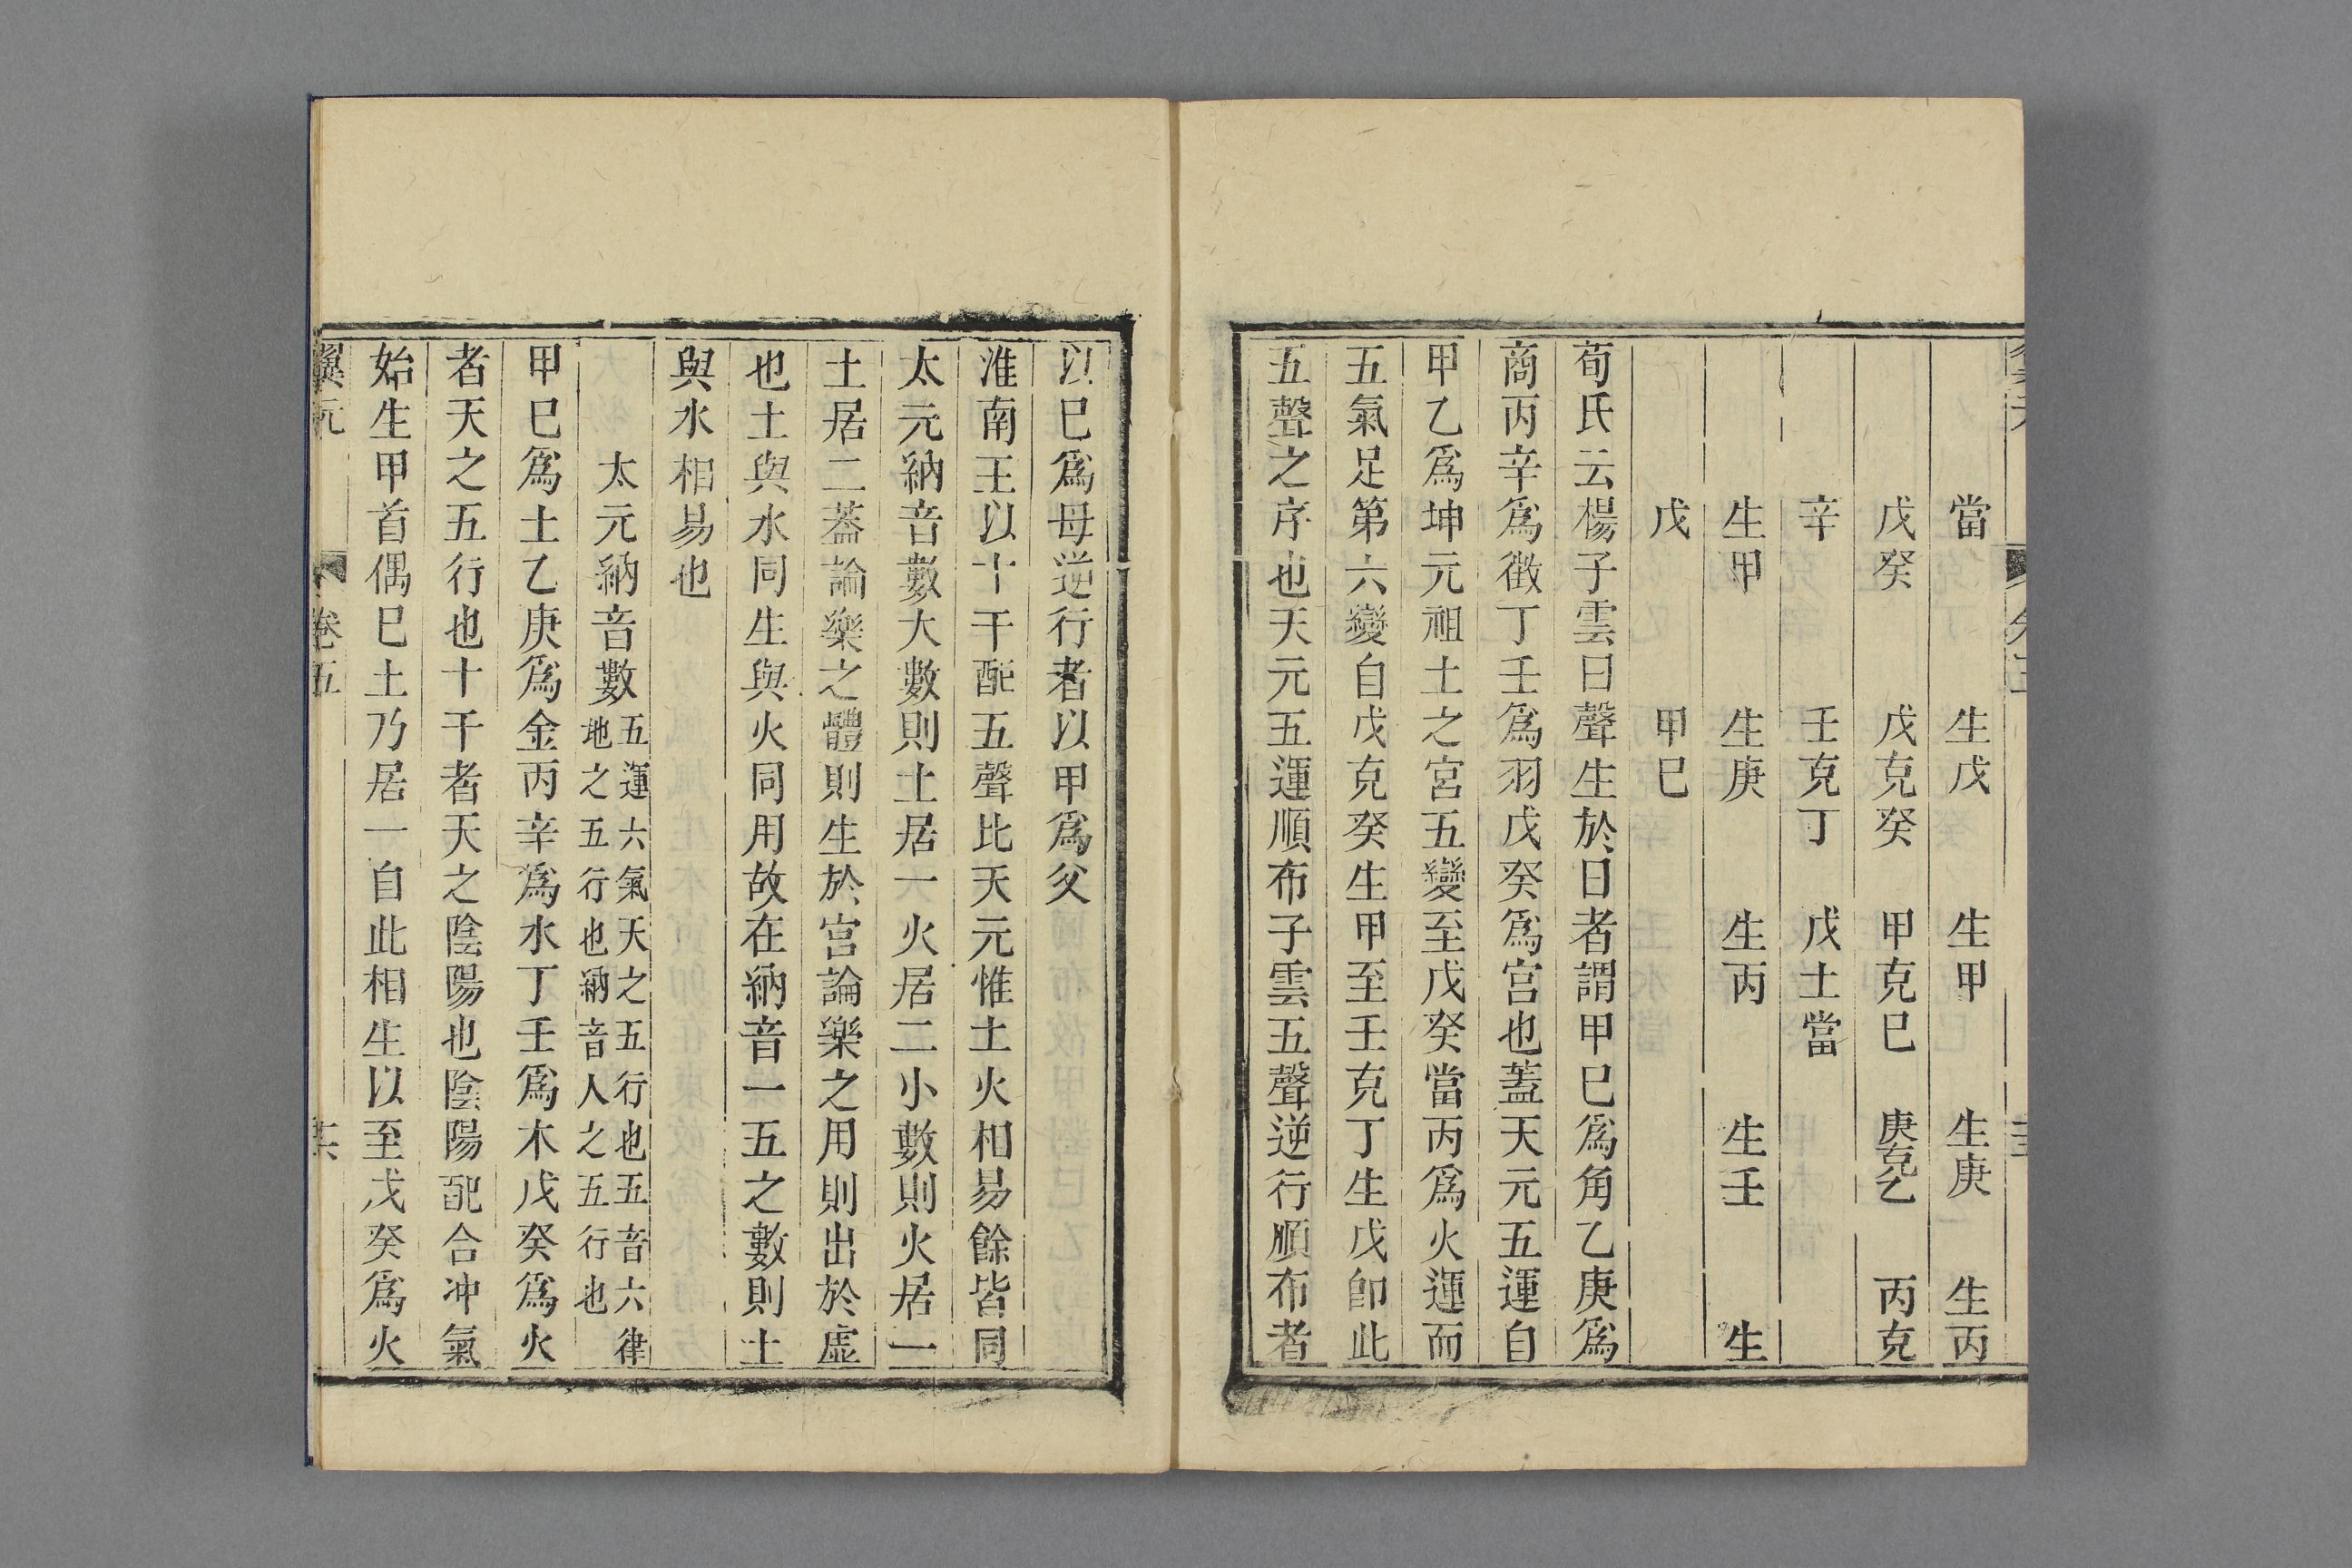 當　生戊　生甲　生庚　生丙
戊癸　戊克癸　甲克巳　庚克乙　丙克
辛　壬克丁　戊土當
生甲　生庚　生丙　生壬　生
戊　甲巳
荀氏云楊子雲曰聲生於日者謂甲巳爲角乙庚爲
商丙辛爲徵丁壬爲羽戊癸爲宫也蓋天元五運自
甲乙爲坤元祖土之宮五變至戊癸當丙爲火運而
五氣足第六變自戊克癸生甲至壬克丁生戊卽此
五聲之序也天元五運順布子雲五聲逆行順布者
以巳爲母逆行者以甲爲父
淮南王以十干配五聲比天元惟土火相易餘皆同
太元納音數大數則土居一火居二小數則火居一
土居二葢論樂之體則生於宮論樂之用則出於虛
也土與水同生與火同用故在納音一五之數則土
與水相易也
太元納音數五運六氣天之五行也五音六律
地之五行也納音人之五行也
甲巳爲土乙庚爲金丙辛爲水丁壬爲木戊癸爲火
者天之五行也十干者天之陰陽也陰陽配合冲氣
始生甲首偶巳土乃居一自此相生以至戊癸爲火
翼元　卷五